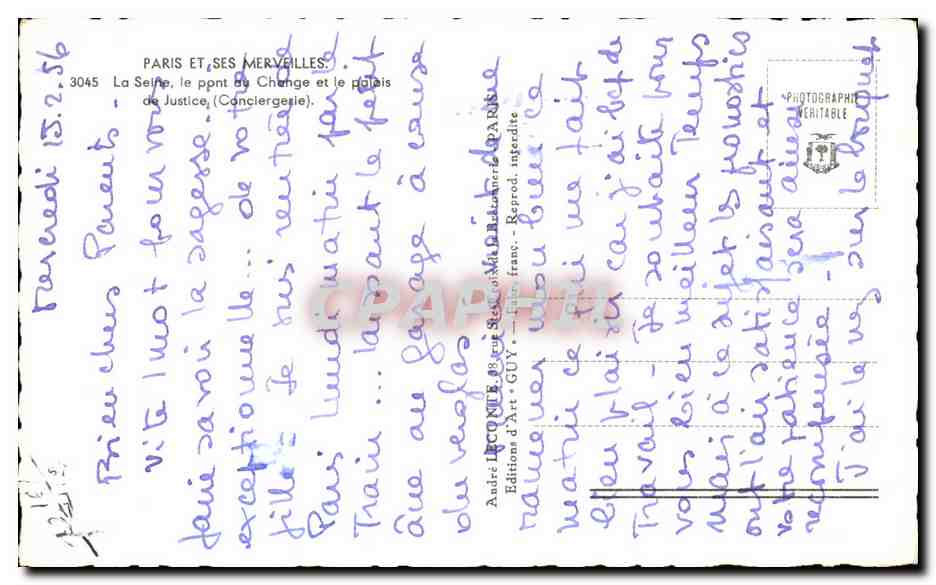 PARIS ET SES MERVEILLES.
3045 La Seine, le pont au Change et le palais
de Justice, (Conciergerie).
PHOTOGRAPHIE
VÉRITABLE
André LECONTE, 38, rue Ste-Croix de la Bretonnerie - PARIS
Editions d'Art "GUY" - Fabr. franç. - Reprod. interdite
CPAPHIL
Mercredi 15.2.56
Bien chers Parents -
vite 1 mot pour vous
faire savoir la sagesse
exceptionnelle... de votre
fille - Je suis rentrée de
Paris lundi matin par le
Train ... laissant le petit
âne au garage à cause
du verglas
ramener mon bien ce
matin ce qui me fait
bien plaisir car j'ai bcp de
Travail - Je souhaite pour
vous bien meilleur Temps
Mais à ce sujet les pronostics
ont l'air satisfaisant et
votre patience sera ainsi
récompensée -
J'ai le nez sur le bouquet